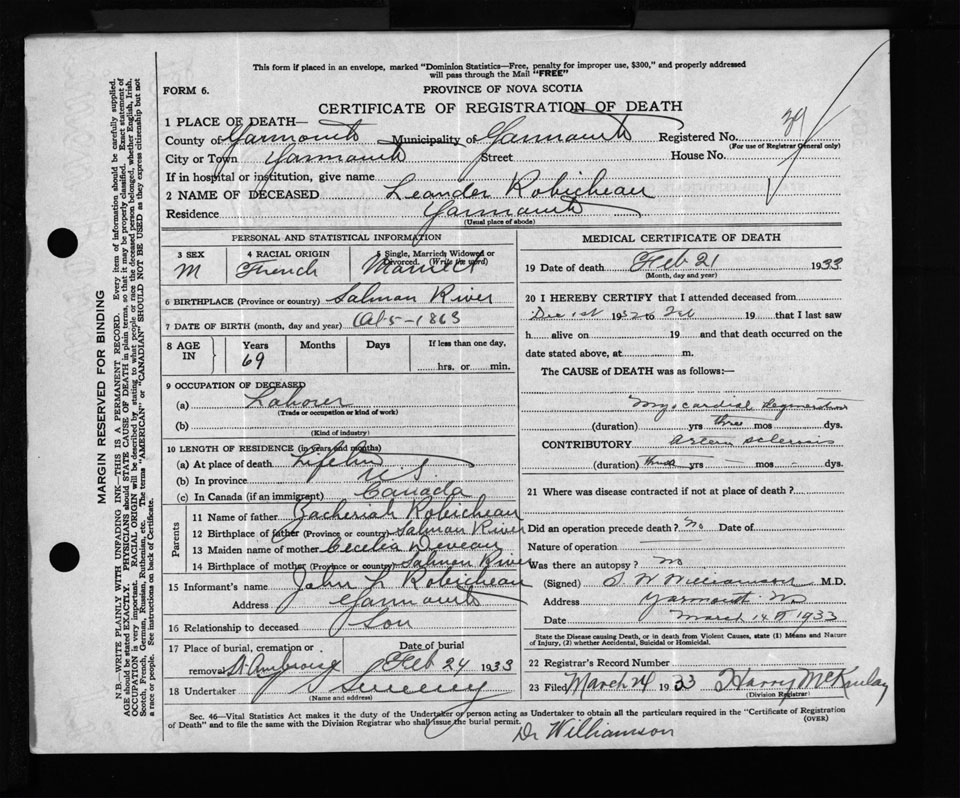 This form if placed in an envelope, marked "Dominion Statistics—Free, penalty for improper use, $300," and properly addressed
will pass through the Mail "FREE"
FORM 6.
PROVINCE OF NOVA SCOTIA
CERTIFICATE OF REGISTRATION OF DEATH
1 PLACE OF DEATH—
County of Yarmouth Municipality of Yarmouth Registered No. 39
(For use of Registrar General only)
City or Town Yarmouth Street House No.
If in hospital or institution, give name
2 NAME OF DECEASED Leander Robicheau
Residence Yarmouth
(Usual place of abode)
PERSONAL AND STATISTICAL INFORMATION
3 SEX 4 RACIAL ORIGIN 5 Single, Married, Widowed or
Divorced. (Write the word)
M French Married
6 BIRTHPLACE (Province or country) Salmon River
7 DATE OF BIRTH (month, day and year) 5-1863
8 AGE IN Years Months Days If less than one day,
69 hrs. or min.
9 OCCUPATION OF DECEASED
(a) Laborer
(Trade or occupation or kind of work)
(b)
(Kind of industry)
10 LENGTH OF RESIDENCE (in years and months)
(a) At place of death Lifetime
(b) In province N S
(c) In Canada (if an immigrant) Canada
Parents
11 Name of father Zacheriah Robicheau
12 Birthplace of father (Province or country) Salmon River
13 Maiden name of mother Cecelia Deveau
14 Birthplace of mother (Province or country) Salmon River
15 Informant's name John L Robicheau
Address Yarmouth
16 Relationship to deceased Son
17 Place of burial, cremation or Date of burial
removal St Ambroise Feb 24 1933
18 Undertaker Sweeny
(Name and address)
MEDICAL CERTIFICATE OF DEATH
19 Date of death Feb 21 1933
(Month, day and year)
20 I HEREBY CERTIFY that I attended deceased from
Dec 1st 1932 to Feb 19 that I last saw
h alive on 19 and that death occurred on
date stated above, at m.
The CAUSE of DEATH was as follows:—
Myocardial degeneration
(duration) yrs three mos dys.
CONTRIBUTORY Arterio sclerosis
(duration) three yrs - mos - dys.
21 Where was disease contracted if not at place of death?
Did an operation precede death? No Date of
Nature of operation
Was there an autopsy? No
(Signed) S W Williamson M.D.
Address Yarmouth NS
Date March 14th 1933
State the Disease causing Death, or in death from Violent Causes, state (1) Means and Nature
of Injury, (2) whether Accidental, Suicidal or Homicidal.
22 Registrar's Record Number
23 Filed March 24 1933 Harry McKinlay
(Division Registrar)
Sec. 46—Vital Statistics Act makes it the duty of the Undertaker or person acting as Undertaker to obtain all the particulars required in the "Certificate of Registration
of Death" and to file the same with the Division Registrar who shall issue the burial permit.
(OVER)
Dr Williamson
MARGIN RESERVED FOR BINDING
N.B.—WRITE PLAINLY WITH UNFADING INK—THIS IS A PERMANENT RECORD. Every item of information should be carefully supplied.
AGE should be stated EXACTLY. PHYSICIANS should STATE CAUSE OF DEATH in plain terms, so that it may be properly classified. Exact statement of
OCCUPATION is very important. RACIAL ORIGIN will be described by stating to what people or race the deceased person belonged, whether English, Irish,
Scotch, French, German, Russian, Ruthenian, etc. The terms "AMERICAN" or "CANADIAN" SHOULD NOT BE USED as they express citizenship but not
a race or people. See instructions on back of Certificate.